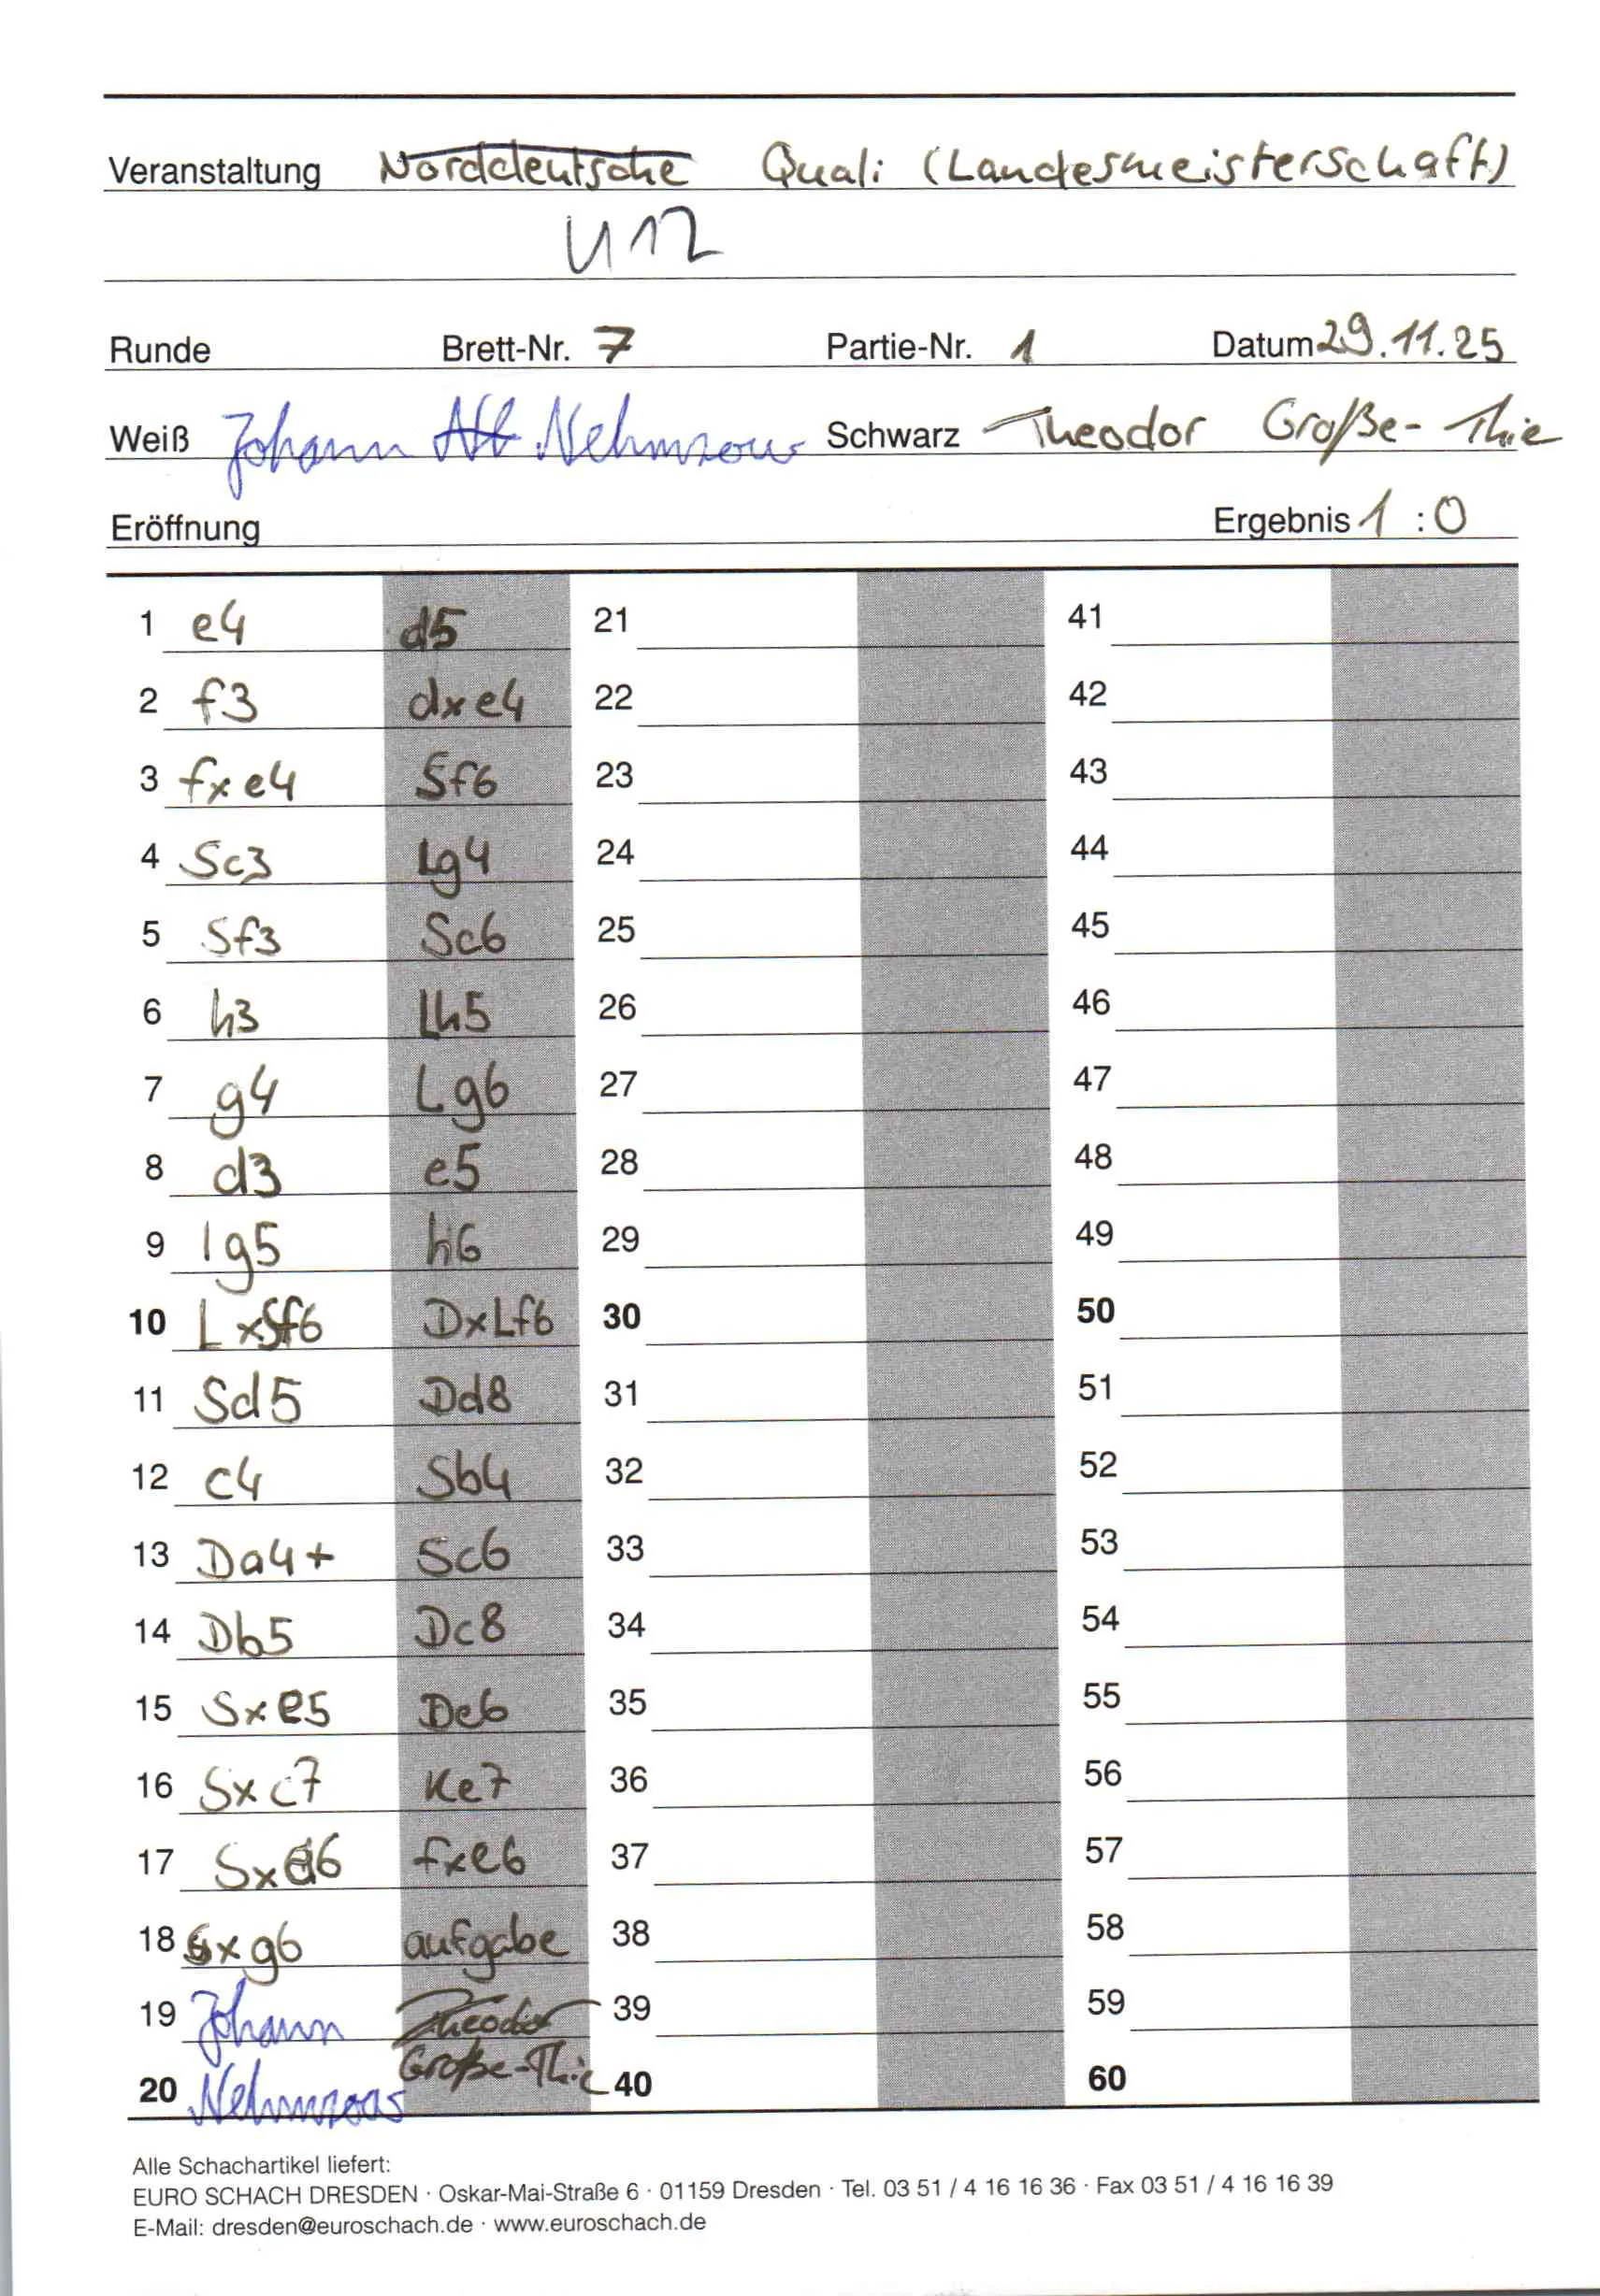 Veranstaltung Norddeutsche Quali (Landesmeisterschaft)
U12
Runde Brett-Nr. 7 Partie-Nr. 1 Datum 29.11.25
Weiß Johann Nehmzow Schwarz Theodor Große-Thie
Eröffnung Ergebnis 1 : 0
1 e4 d5 21 41
2 f3 dxe4 22 42
3 fxe4 Sf6 23 43
4 Sc3 Lg4 24 44
5 Sf3 Sc6 25 45
6 h3 Lh5 26 46
7 g4 Lg6 27 47
8 d3 e5 28 48
9 lg5 h6 29 49
10 LxSf6 DxLf6 30 50
11 Sd5 Dd8 31 51
12 c4 Sb4 32 52
13 Da4+ Sc6 33 53
14 Db5 Dc8 34 54
15 Sxe5 De6 35 55
16 Sxc7 Ke7 36 56
17 Sxe6 fxe6 37 57
18 Sxg6 aufgabe 38 58
19 Johann Theodor 39 59
Große-Thie
20 Nehmzow 40 60
Alle Schachartikel liefert:
EURO SCHACH DRESDEN · Oskar-Mai-Straße 6 · 01159 Dresden · Tel. 03 51 / 4 16 16 36 · Fax 03 51 / 4 16 16 39
E-Mail: dresden@euroschach.de · www.euroschach.de